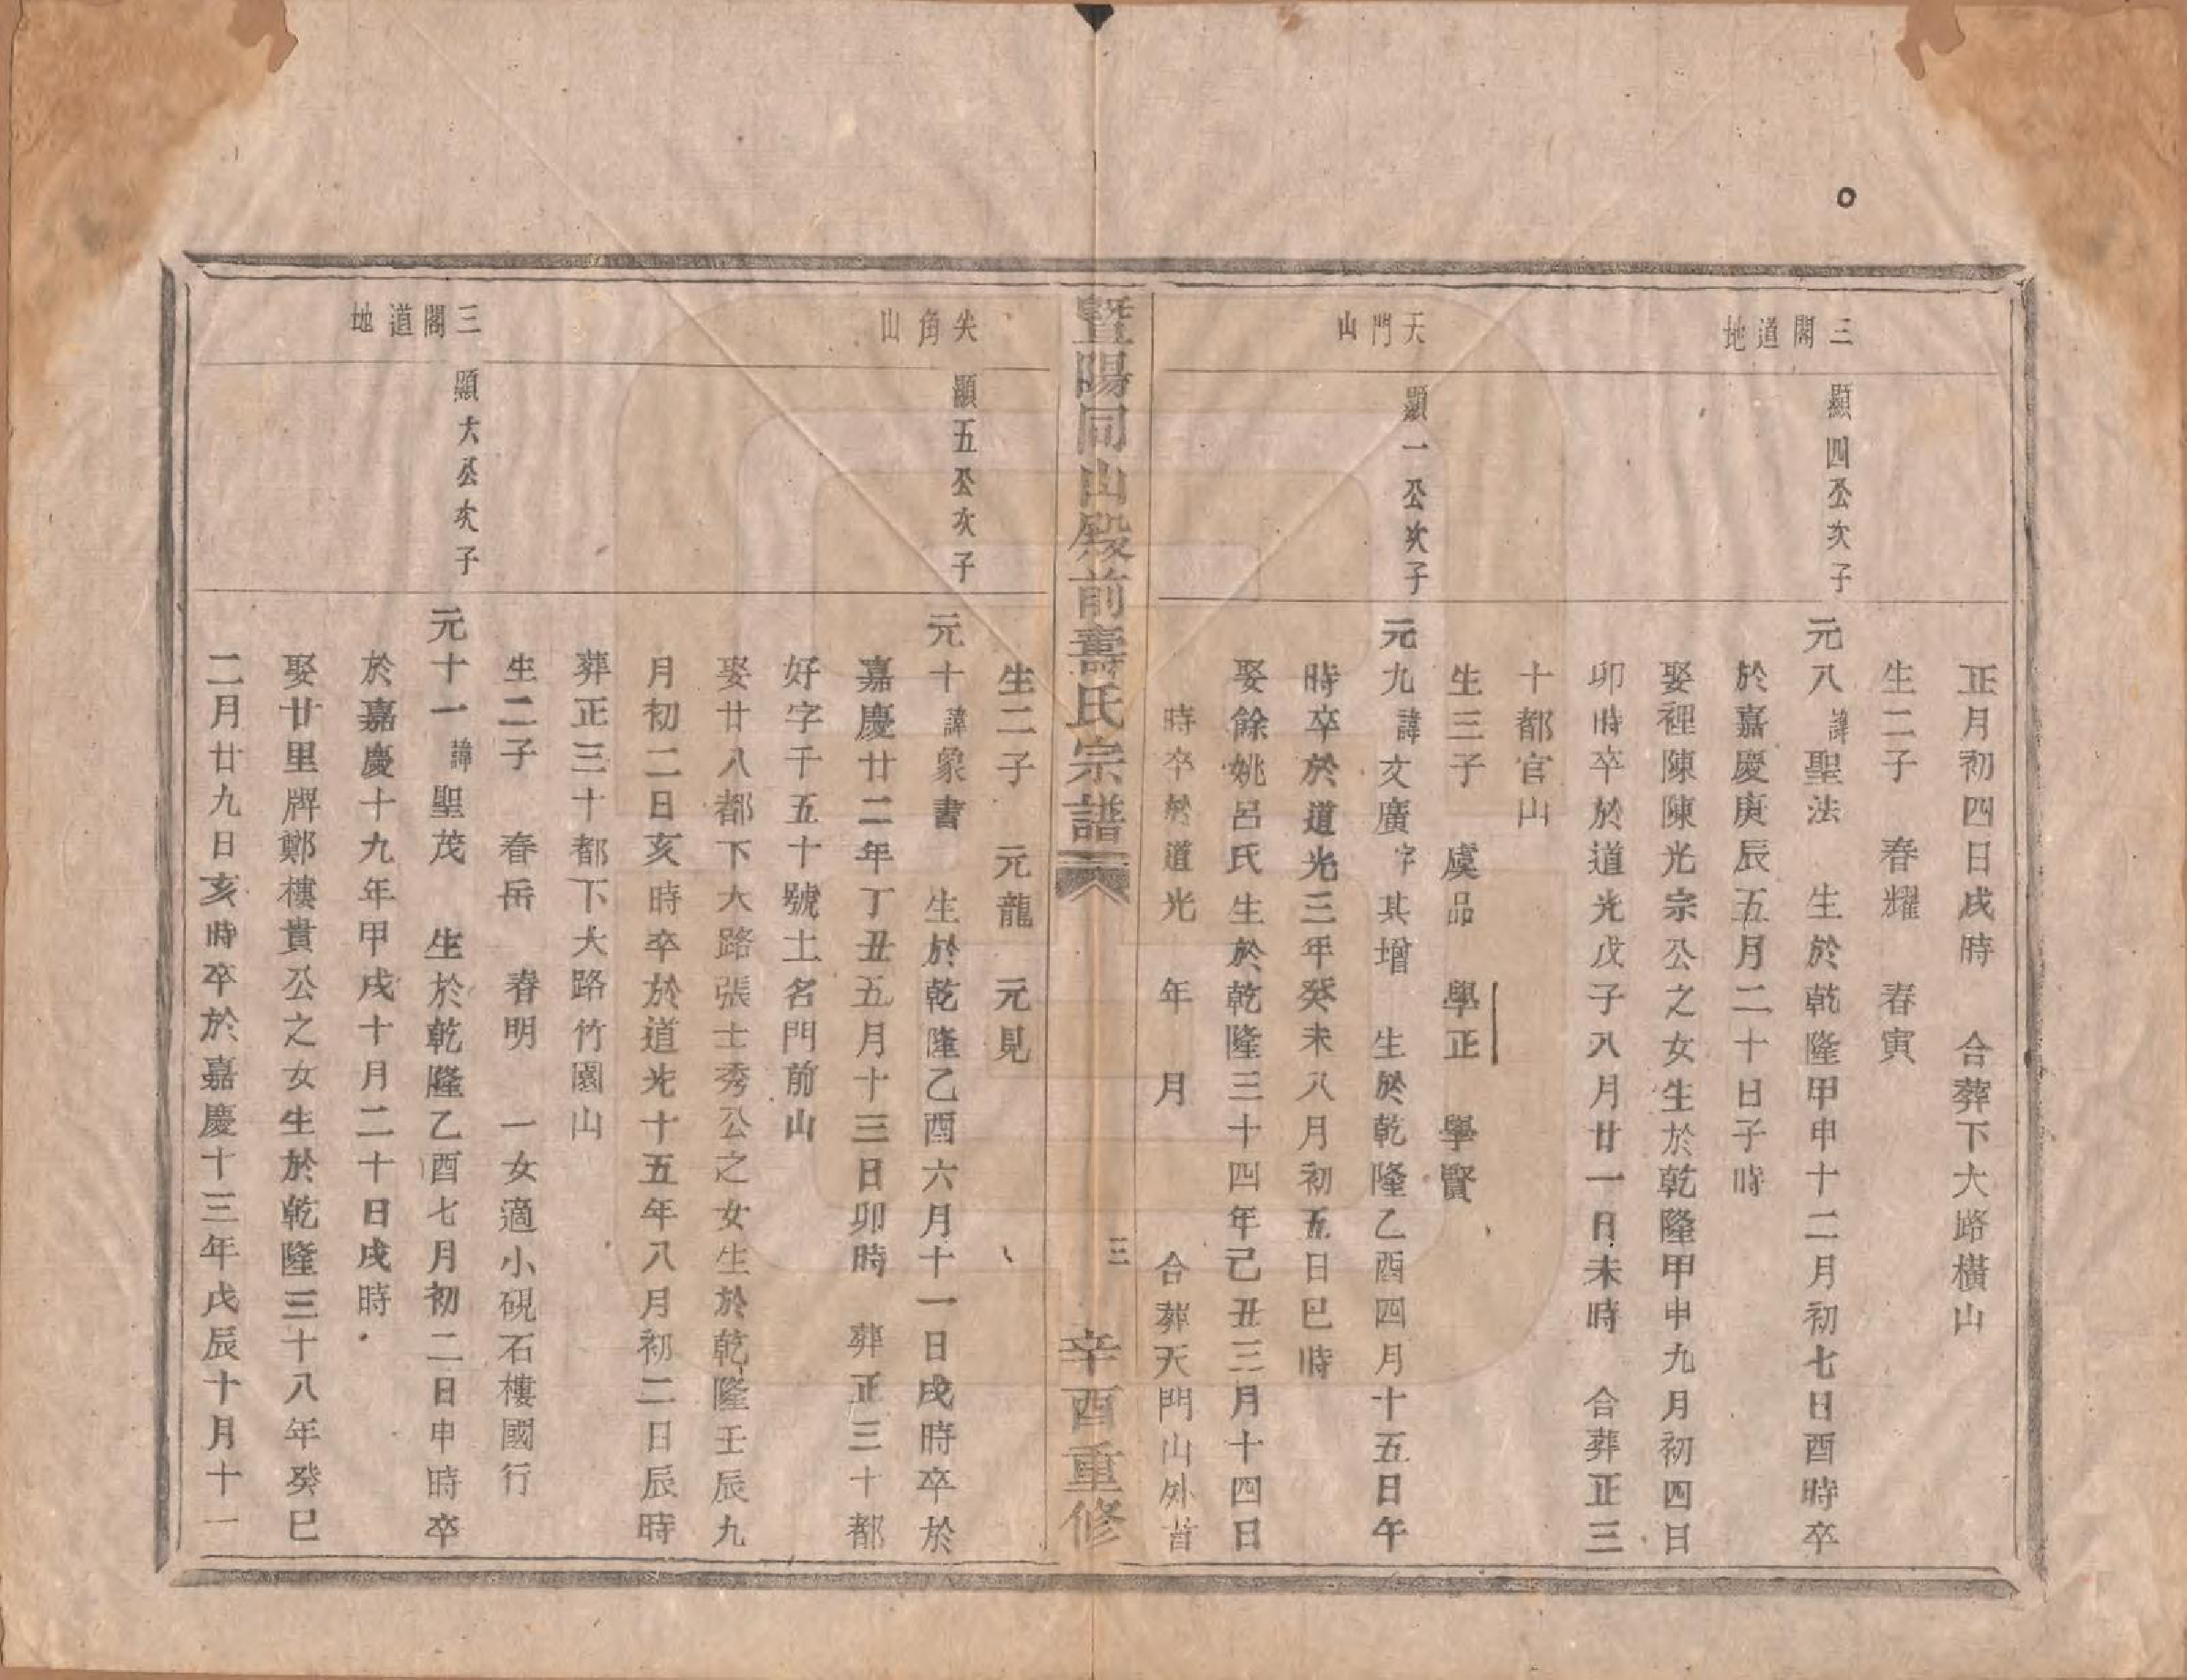 三閣道地
天門山
顯四公次子
顯一公次子
正月初四日戌時　合葬下大路橫山
生二子　春耀　春寅
元八諱聖法　生於乾隆甲申十二月初七日酉時卒
於嘉慶庚辰五月二十日子時
娶裡陳陳光宗公之女生於乾隆甲申九月初四日
卯時卒於道光戊子八月廿一日未時　合葬正三
十都官山
生三子　虞品　學正　學賢
元九諱文廣字其增　生於乾隆乙酉四月十五日午
時卒於道光三年癸未八月初五日巳時
娶餘姚呂氏生於乾隆三十四年己丑三月十四日
時卒於道光　年　月　合葬天門山外首
暨陽同山殿前壽氏宗譜
三
辛酉重修
尖角山
三閣道地
顯五公次子
顯大公次子
生二子　元龍　元見
元十諱象書　生於乾隆乙酉六月十一日戌時卒於
嘉慶廿二年丁丑五月十三日卯時　葬正三十都
好字千五十號土名門前山
娶廿八都下大路張士秀公之女生於乾隆壬辰九
月初二日亥時卒於道光十五年八月初二日辰時
葬正三十都下大路竹園山
生二子　春岳　春明　一女適小硯石樓國行
元十一諱聖茂　生於乾隆乙酉七月初二日申時卒
於嘉慶十九年甲戌十月二十日戌時
娶廿里牌鄭樓貴公之女生於乾隆三十八年癸巳
二月廿九日亥時卒於嘉慶十三年戊辰十月十一